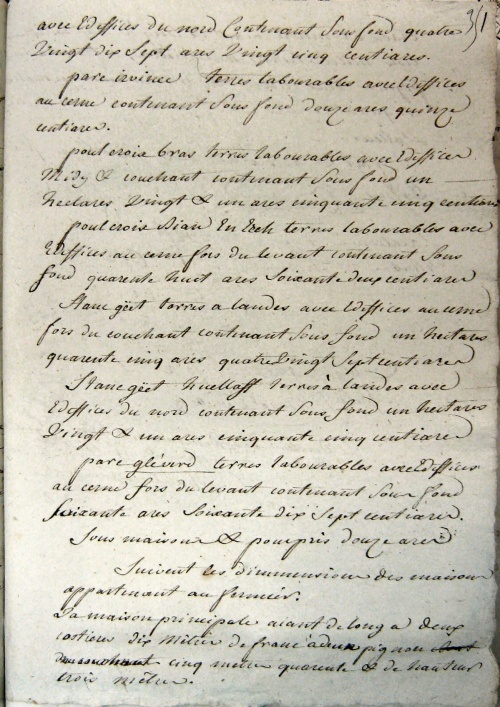 31
avec Ediffices du nord Contenant Sous fond quatre
Vingt dix Sept ares Vingt cinq centiares.
parc izvinec terres labourables avec Ediffices
au cerne contenant Sous fond douze ares quinze
centiares.
poul croix bras terres labourables avec Ediffices
Midy & couchant contenant Sous fond un
hectares Vingt & un ares cinquante cinq centiares
poul croix Bian En Ereh terres labourables avec
Ediffices au cerne fors du levant contenant Sous
fond quarente huit ares Soixante deux centiares
Stanc gët terres a landes avec Ediffices au cerne
fors du couchant contenant Sous fond un hectares
quarente cinq ares quatre Vingt Sept centiares
Stanc gët huellaff terres à landes avec
Ediffices du nord contenant Sous fond un hectares
Vingt & un ares cinquante cinq centiares
parc glévird terres labourables avec Ediffices
au cerne fors du levant contenant Sous fond
Soixante ares Soixante dix Sept centiares.
Sous maison & pourpris douze ares
Suivent les dimmensions des maisons
appartenant au fermier.
La maison principale aiant de long a deux
costieres dix mètre de franc pignon
cinq metre quarente & de hauteur
trois mètre.